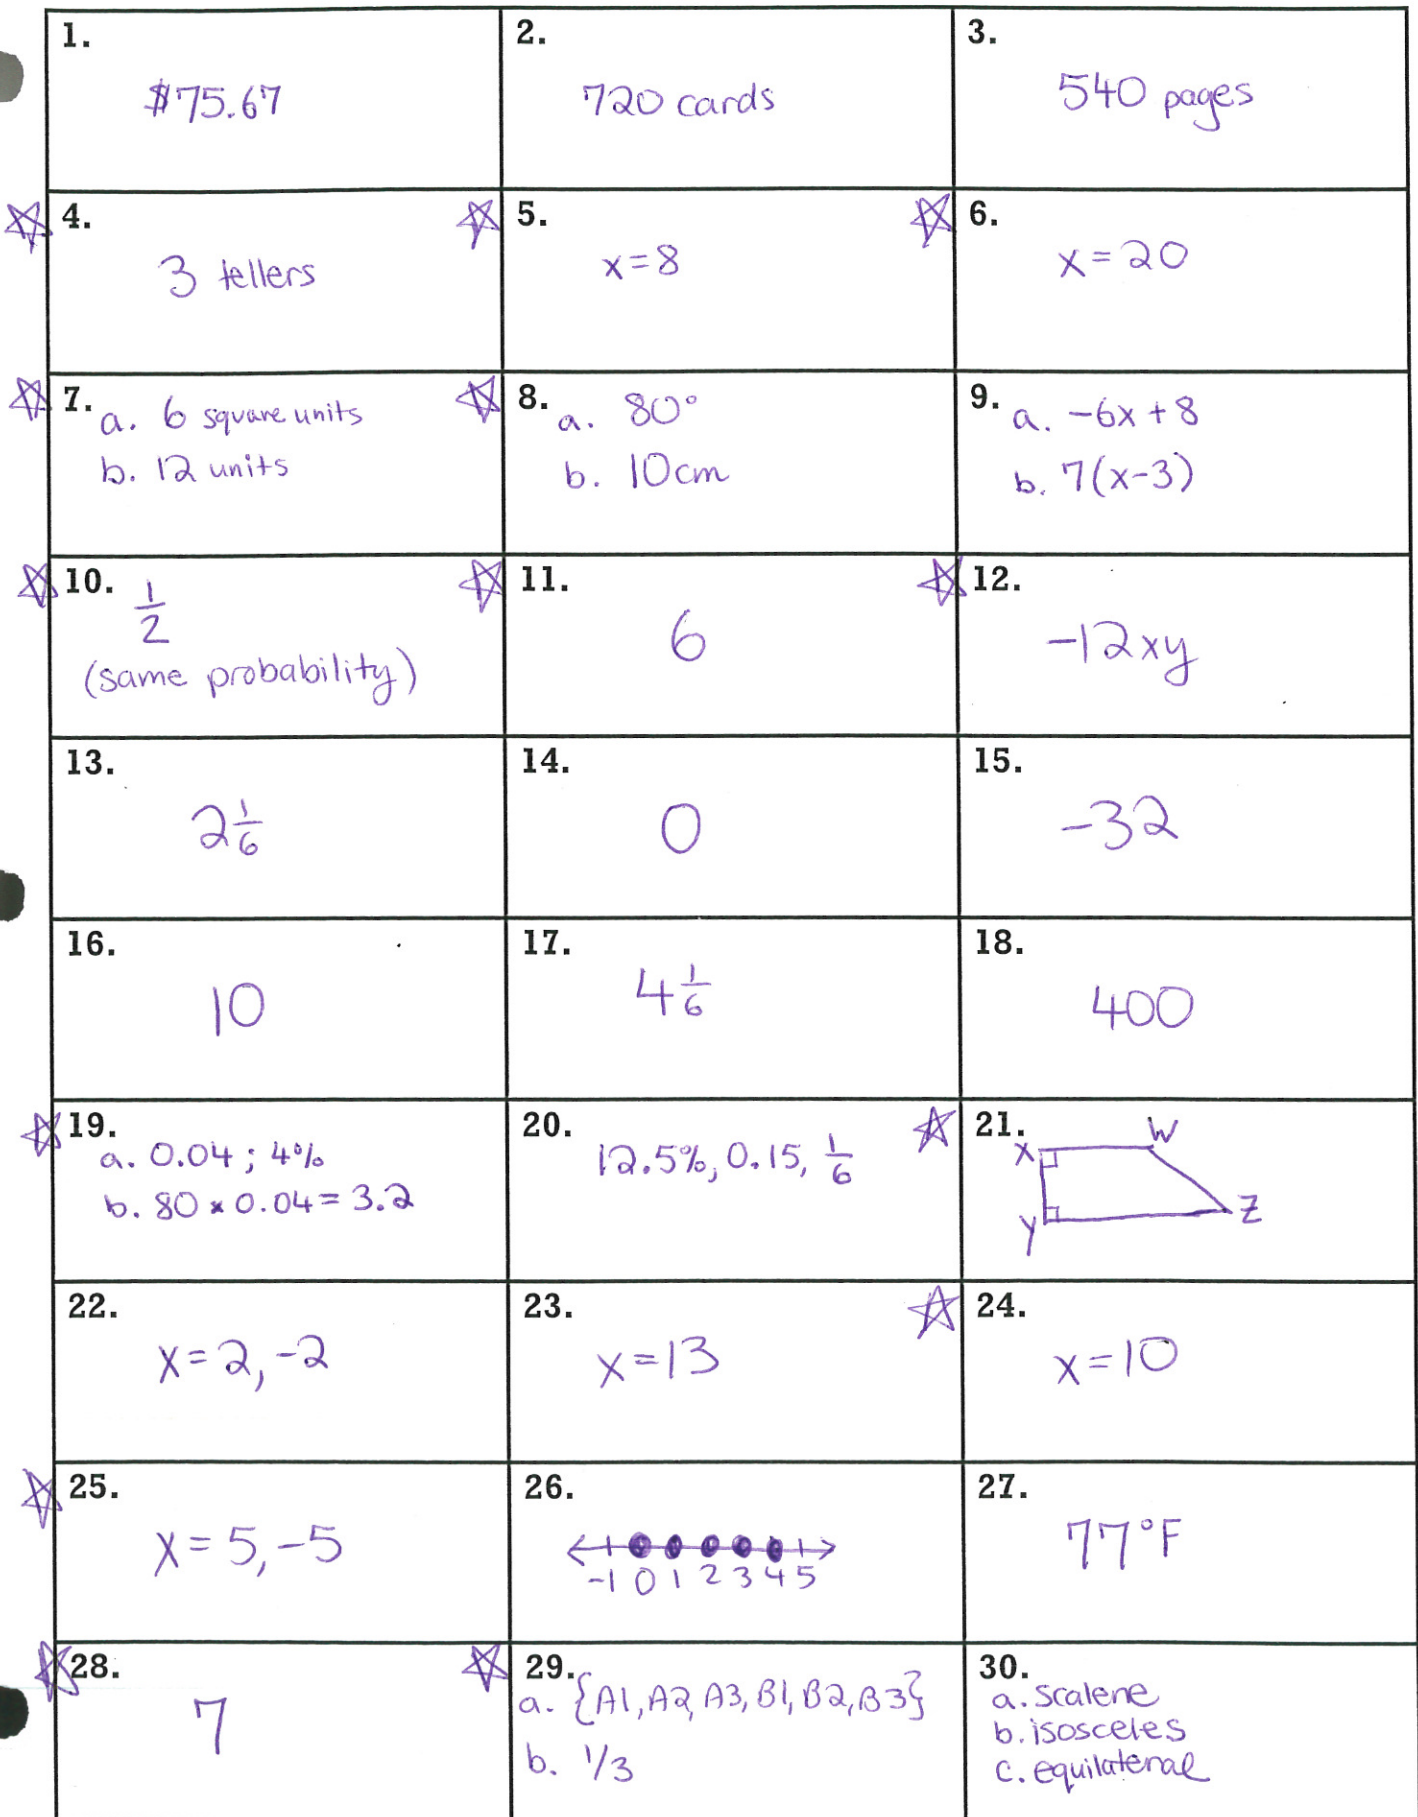 1.
$75.67
2.
720 cards
3.
540 pages
4.
3 tellers
5.
x=8
6.
x=20
7.
a. 6 square units
b. 12 units
8.
a. 80°
b. 10cm
9.
a. -6x+8
b. 7(x-3)
10.
1/2
(same probability)
11.
6
12.
-12xy
13.
2 1/6
14.
0
15.
-32
16.
10
17.
4 1/6
18.
400
19.
a. 0.04; 4%
b. 80 × 0.04 = 3.2
20.
12.5%, 0.15, 1/6
21.
X W
Y Z
22.
x=2,-2
23.
x=13
24.
x=10
25.
x=5,-5
26.
-1 0 1 2 3 4 5
27.
77°F
28.
7
29.
a. {A1, A2, A3, B1, B2, B3}
b. 1/3
30.
a. scalene
b. isosceles
c. equilateral